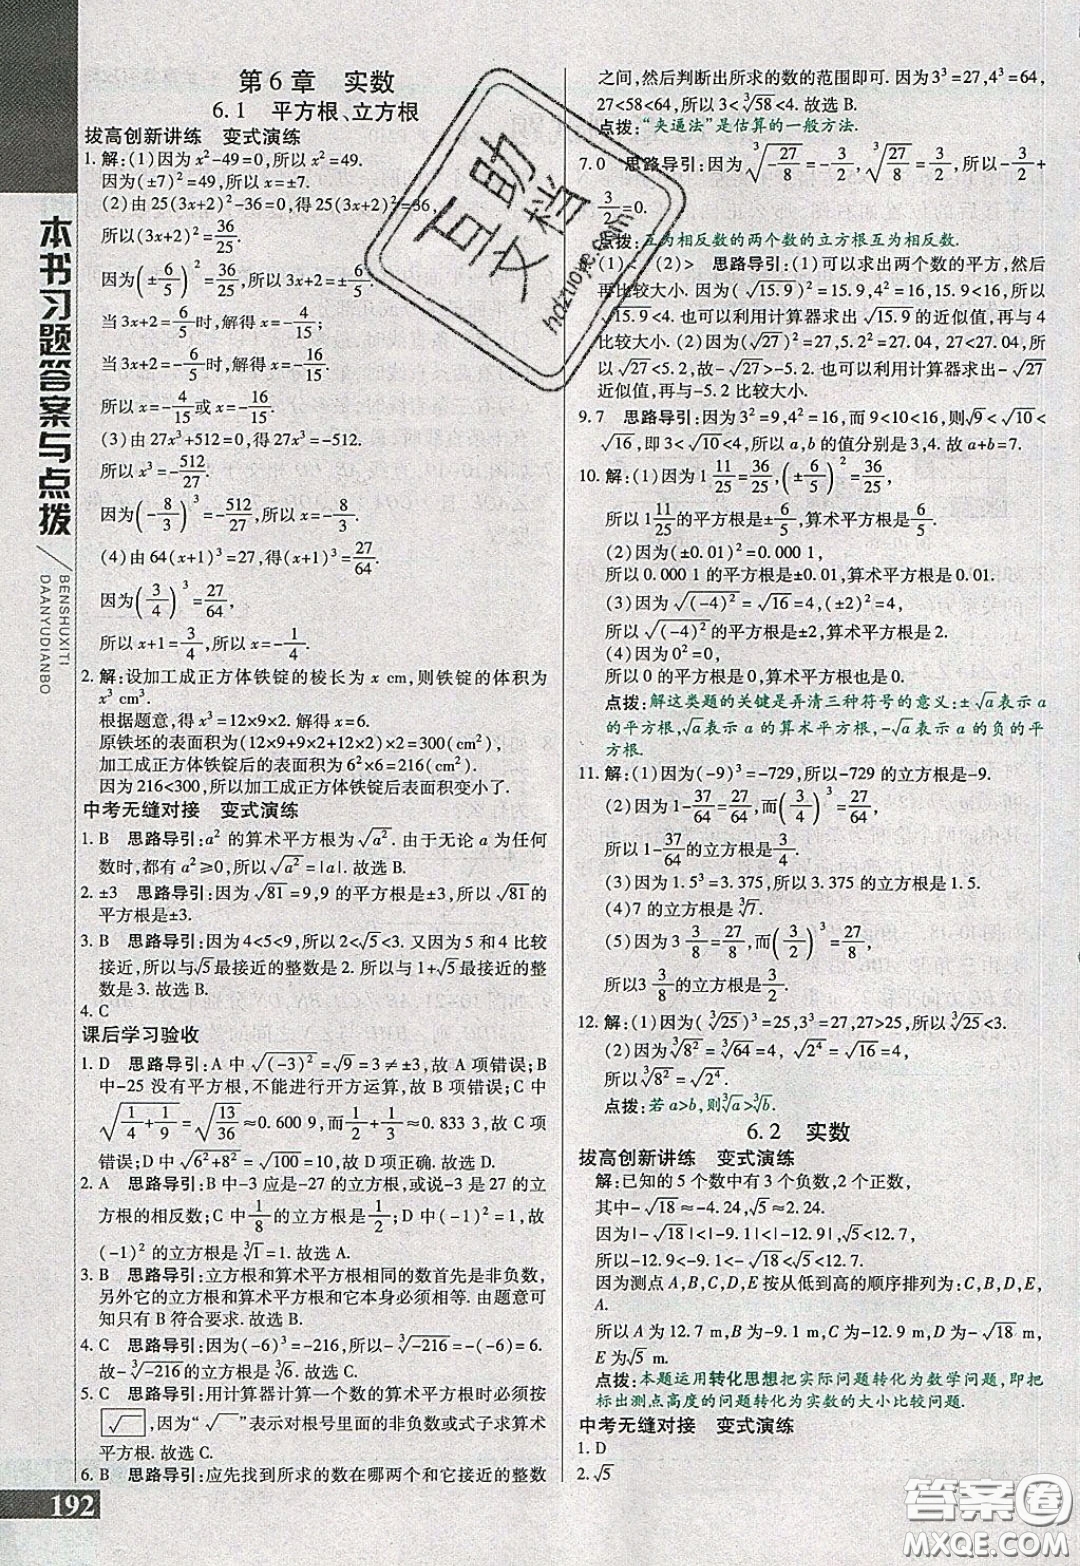 本书习题答案与点拨
BENSHUXITI
DAANYUDIANBO
第6章 实数
6.1 平方根、立方根
拔高创新讲练 变式演练
1. 解:(1)因为 x²-49=0,所以 x²=49.
因为(±7)²=49,所以 x=±7.
(2)由 25(3x+2)²-36=0,得 25(3x+2)²=36,
所以(3x+2)²=36/25.
因为(±6/5)²=36/25,所以 3x+2=±6/5.
当 3x+2=6/5时,解得 x=-4/15;
当 3x+2=-6/5时,解得 x=-16/15.
所以 x=-4/15或 x=-16/15.
(3)由 27x³+512=0,得 27x³=-512.
所以 x³=-512/27.
因为(-8/3)³=-512/27,所以 x=-8/3.
(4)由 64(x+1)³=27,得(x+1)³=27/64.
因为(3/4)³=27/64,
所以 x+1=3/4,所以 x=-1/4.
2. 解:设加工成正方体铁锭的棱长为 x cm,则铁锭的体积为
x³ cm³.
根据题意,得 x³=12×9×2. 解得 x=6.
原铁坯的表面积为(12×9+9×2+12×2)×2=300(cm²),
加工成正方体铁锭后的表面积为 6²×6=216(cm²).
因为 216<300,所以加工成正方体铁锭后表面积变小了.
中考无缝对接 变式演练
1. B 思路导引:a² 的算术平方根为√a². 由于无论 a 为任何
数时,都有 a²≥0,所以√a²=|a|. 故选 B.
2. ±3 思路导引:因为√81=9,9 的平方根是±3,所以√81的
平方根是±3.
3. B 思路导引:因为 4<5<9,所以 2<√5<3. 又因为 5 和 4 比较
接近,所以与√5最接近的整数是 2. 所以与 1+√5最接近的整
数是 3. 故选 B.
4. C
课后学习验收
1. D 思路导引:A 中√(-3)²=√9=3≠±3,故 A 项错误;B
中-25 没有平方根,不能进行开方运算,故 B 项错误;C 中
√(1/4+1/9)=√(13/36)≈0.600 9,而1/2+1/3≈0.833 3,故 C 项
错误;D 中√(6²+8²)=√100=10,故 D 项正确. 故选 D.
2. A 思路导引:B 中-3 应是-27 的立方根,或说-3 是 27 的立
方根的相反数;C 中1/8的立方根是1/2;D 中(-1)²=1,故
(-1)² 的立方根是∛1=1. 故选 A.
3. B 思路导引:立方根和算术平方根相同的数首先是非负数,
另外它的立方根和算术平方根和它本身必须相等. 由题意可
知只有 B 符合要求. 故选 B.
4. C 思路导引:因为(-6)³=-216,所以-∛-216=-(-6)=6.
故-∛-216的立方根是∛6. 故选 C.
5. C 思路导引:用计算器计算一个数的算术平方根时必须按
√ ,因为“√ ”表示对根号里面的非负数或式子求算术
平方根. 故选 C.
6. B 思路导引:应先找到所求的数在哪两个和它接近的整数
192
之间,然后判断出所求的数的范围即可. 因为 3³=27,4³=64,
27<58<64,所以 3<∛58<4. 故选 B.
点拨:“夹逼法”是估算的一般方法.
7. 0 思路导引:因为∛(-27/8)=-3/2,∛(27/8)=3/2,所以-3/2+
3/2=0.
点拨:互为相反数的两个数的立方根互为相反数.
(1)< (2)> 思路导引:(1)可以求出两个数的平方,然后
再比较大小. (√15.9)²=15.9,4²=16,15.9<16,所以
√15.9<4. 也可以利用计算器求出√15.9的近似值,再与 4
比较大小. (2)因为(√27)²=27,5.2²=27.04, 27<27.04,所
以√27<5.2,故-√27>-5.2. 也可以利用计算器求出-√27
近似值,再与-5.2 比较大小.
9. 7 思路导引:因为 3²=9,4²=16,而 9<10<16,则√9<√10<
√16,即 3<√10<4,所以 a,b 的值分别是 3,4. 故 a+b=7.
10. 解:(1)因为 1 11/25=36/25,(±6/5)²=36/25,
所以 1 11/25的平方根是±6/5,算术平方根是6/5.
(2)因为(±0.01)²=0.000 1,
所以 0.000 1 的平方根是±0.01,算术平方根是 0.01.
(3)因为√(-4)²=√16=4,(±2)²=4,
所以√(-4)²的平方根是±2,算术平方根是 2.
(4)因为 0²=0,
所以 0 的平方根是 0,算术平方根是 0.
点拨:解这类题的关键是弄清三种符号的意义:±√a表示 a
的平方根,√a表示 a 的算术平方根,-√a表示 a 的负的平
方根.
11. 解:(1)因为(-9)³=-729,所以-729 的立方根是-9.
(2)因为 1-37/64=27/64,而(3/4)³=27/64,
所以 1-37/64的立方根是3/4.
(3)因为 1.5³=3.375,所以 3.375 的立方根是 1.5.
(4)7 的立方根是∛7.
(5)因为 3 3/8=27/8,而(3/2)³=27/8,
所以 3 3/8的立方根是3/2.
12. 解:(1)因为(∛25)³=25,3³=27,27>25,所以∛25<3.
(2)因为∛8²=∛64=4,√2⁴=√16=4,
所以∛8²=√2⁴.
点拨:若 a>b,则∛a>∛b.
6.2 实数
拔高创新讲练 变式演练
解:已知的 5 个数中有 3 个负数,2 个正数,
其中-√18≈-4.24,√5≈2.24.
因为|-√18|<|-9.1|<|-12.9|,√5<12.7,
所以-12.9<-9.1<-√18<√5<12.7.
因为测点 A,B,C,D,E 按从低到高的顺序排列为:C,B,D,E,
A.
所以 A 为 12.7 m,B 为-9.1 m,C 为-12.9 m,D 为-√18 m,
E 为√5 m.
点拨:本题运用转化思想把实际问题转化为数学问题,即把
标出测点高度的问题转化为实数的大小比较问题.
中考无缝对接 变式演练
1. D
2. √5
互助文档
hdzuoye.com
答案圈
MXQE.COM